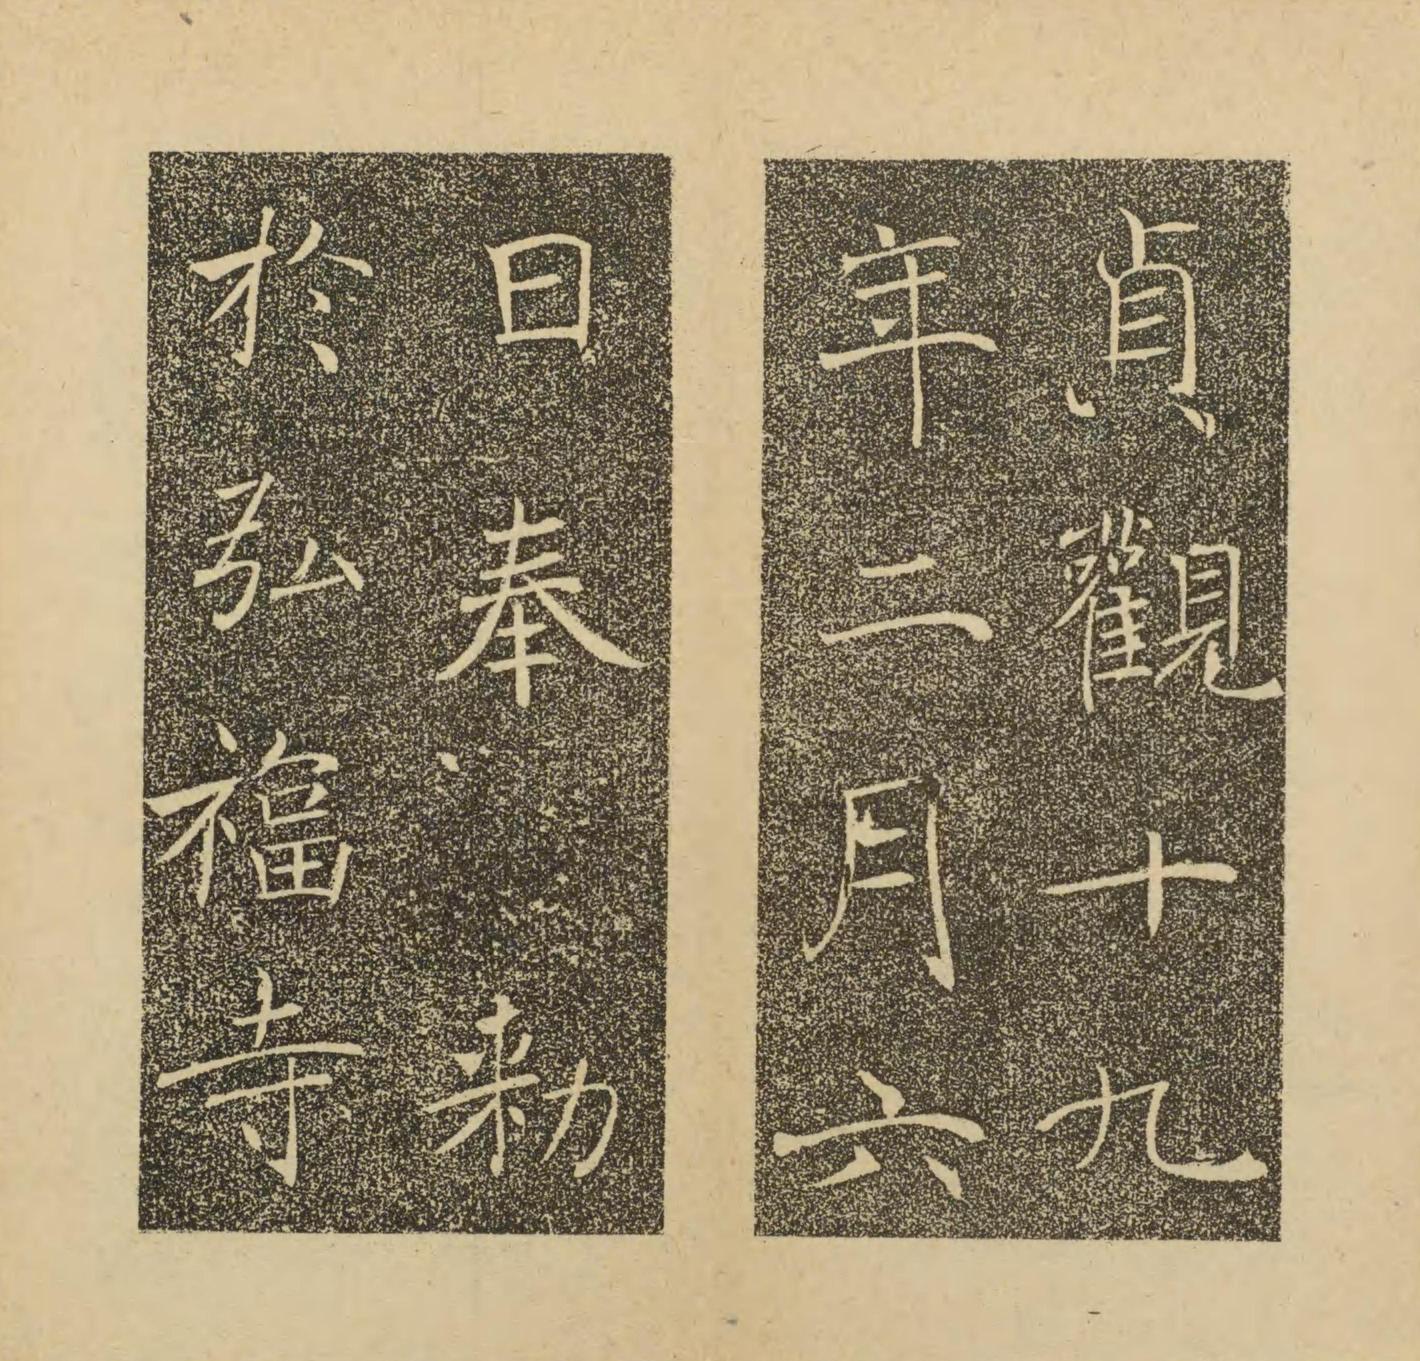 貞觀十九
年二月六
日奉敕
於弘福寺